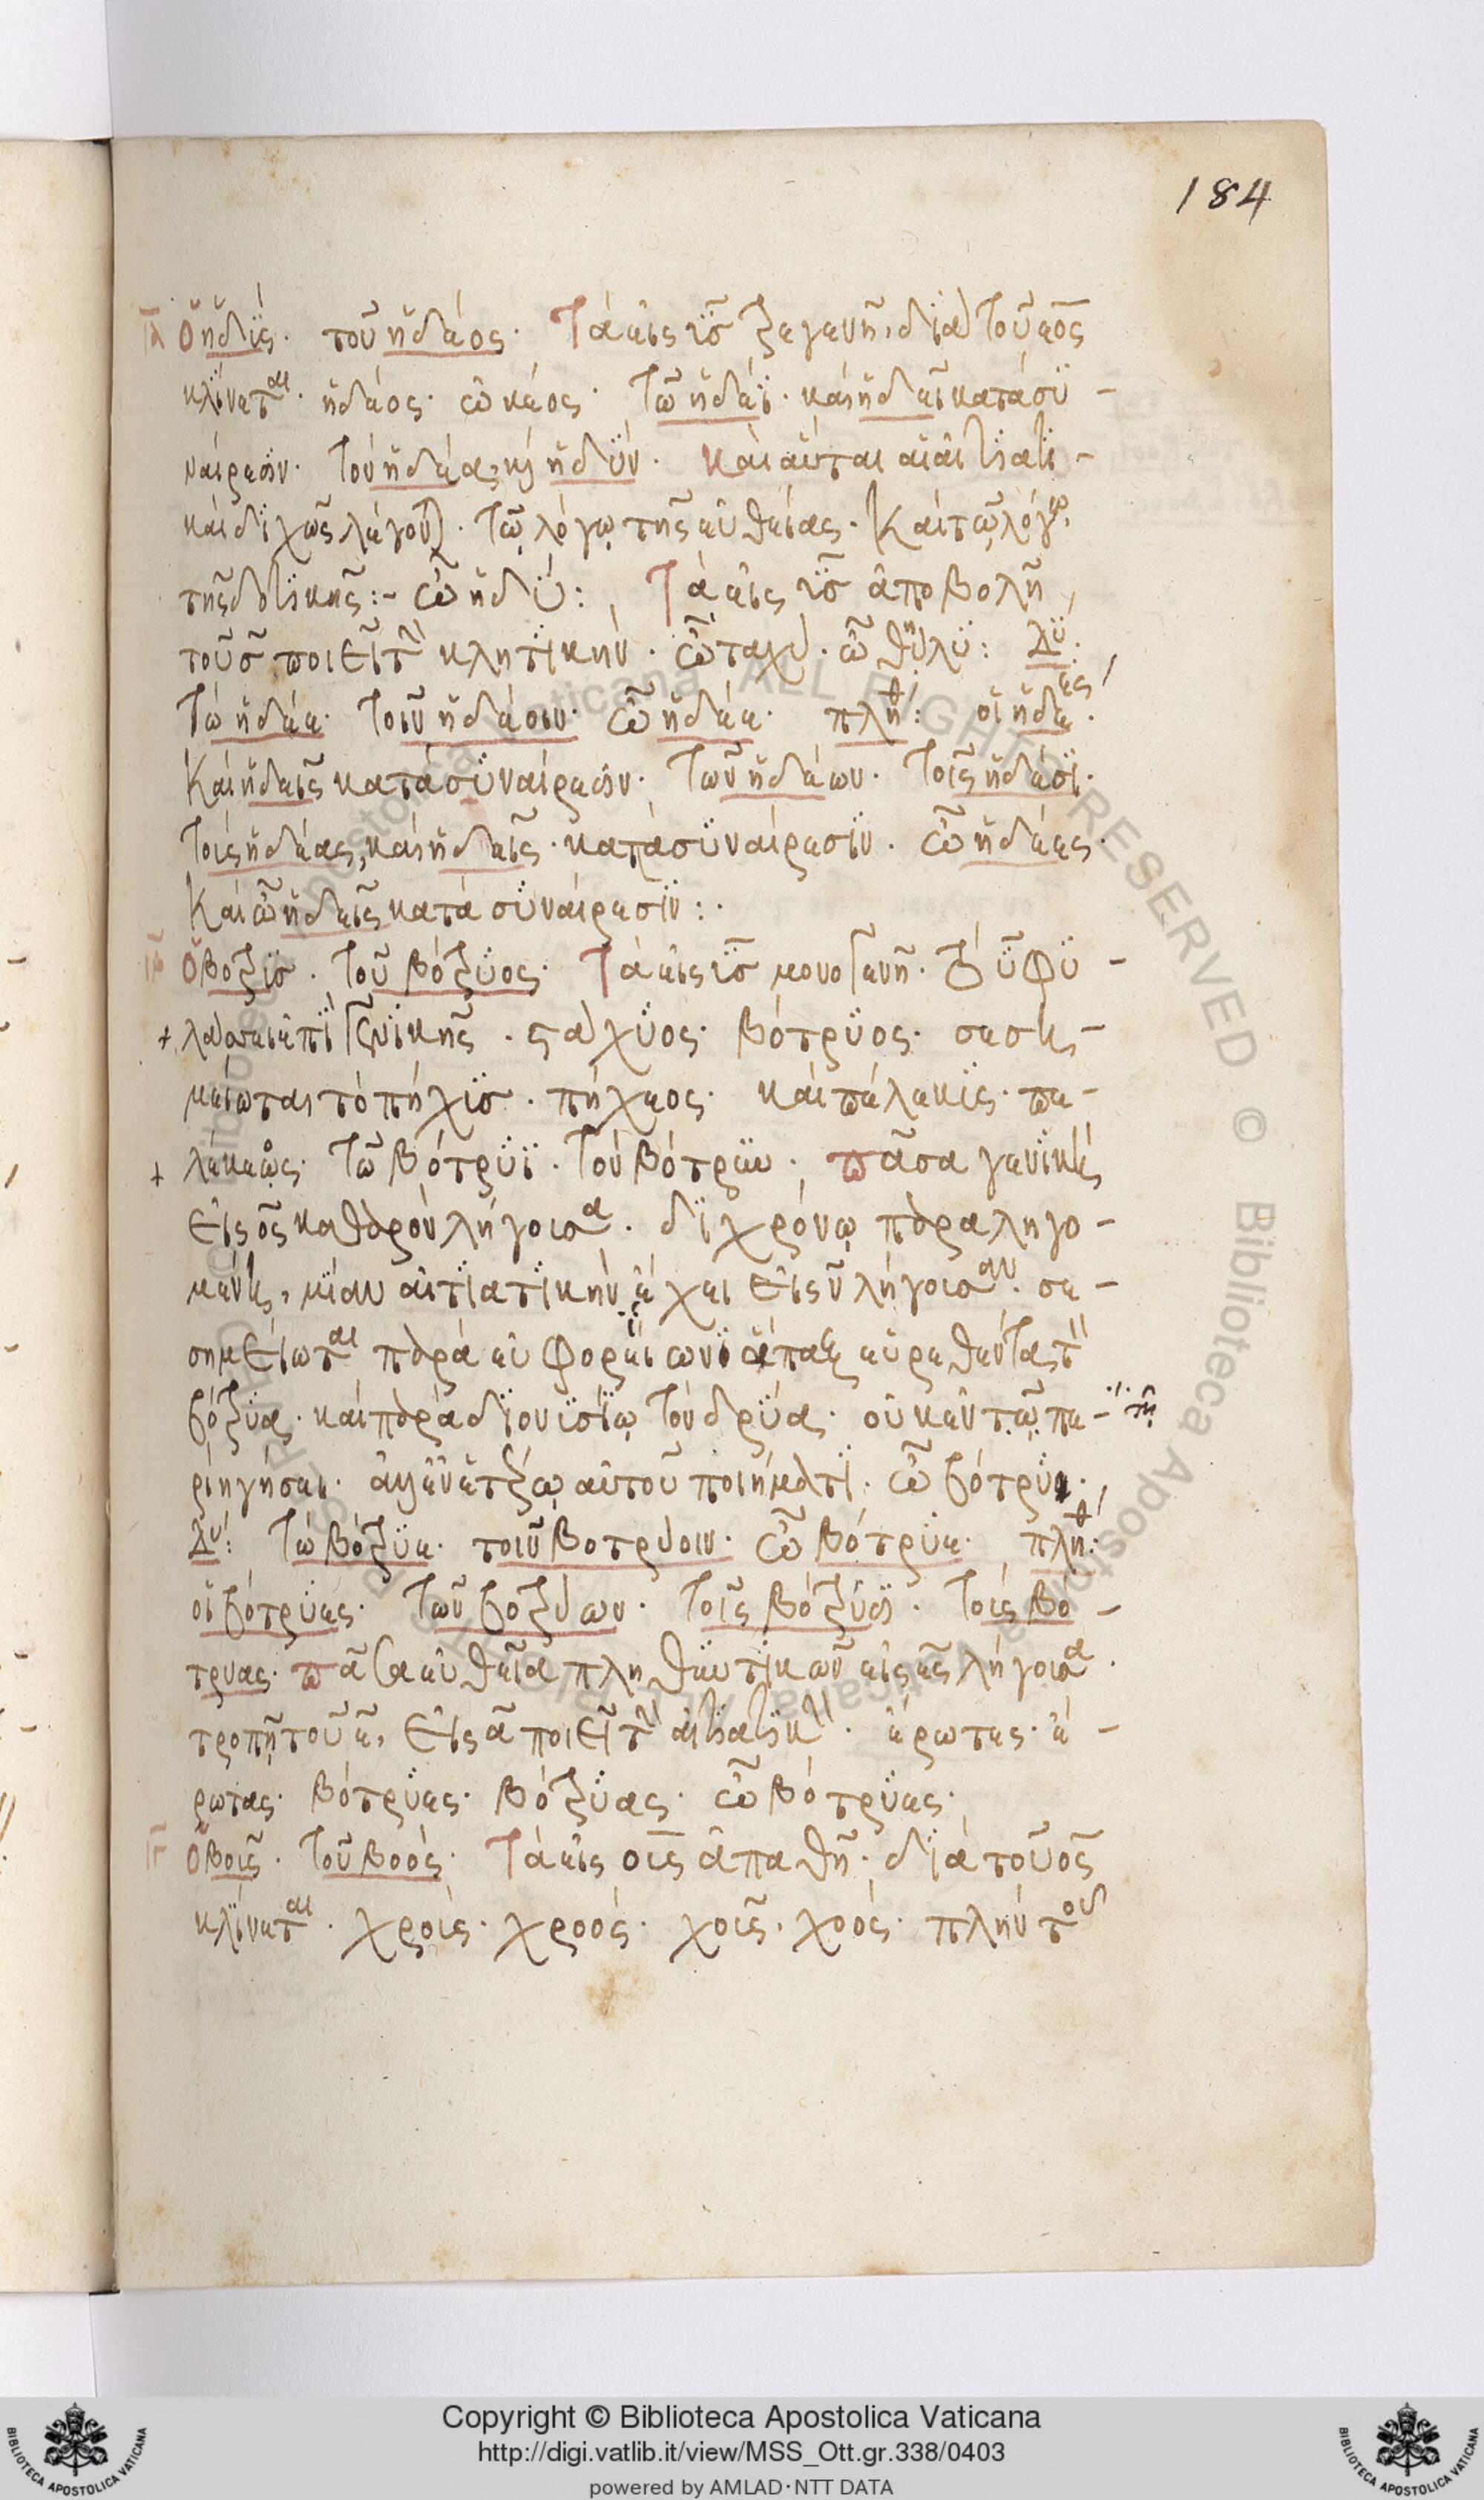 184
ια Ὁ ἡδύς. τοῦ ἡδέος. Τὰ εἰς υς τριγενῆ, διὰ τοῦ εος
κλίνεται. ἡδέος. ὠκέος. τῷ ἡδέϊ. καὶ ἡδεῖ κατὰ συ -
ναίρεσιν. τὸν ἡδέα, καὶ ἡδύν. καὶ αὗται αἱ αἰτιατι -
καὶ διχῶς λέγονται. τῷ λόγῳ τῆς εὐθείας. καὶ τῷ λόγῳ
τῆς δοτικῆς :- ὦ ἡδύ: Τὰ εἰς υς ἀποβολῇ
τοῦ σ ποιεῖ τὴν κλητικήν. ὦ ταχύ. ὦ θῆλυ: Δυ:
τὼ ἡδέε. τοῖν ἡδέοιν. ὦ ἡδέε. πλη: οἱ ἡδέες.
καὶ ἡδεῖς κατὰ συναίρεσιν. τῶν ἡδέων. τοῖς ἡδέσι.
τοὺς ἡδέας, καὶ ἡδεῖς. κατὰ συναίρεσιν. ὦ ἡδέες.
καὶ ὦ ἡδεῖς κατὰ συναίρεσιν :.
ιβ Ὁ βότρυς. τοῦ βότρυος. Τὰ εἰς υς μονογενῆ. τὸ υ φυ -
λάσσει ἐπὶ γενικῆς. στάχυος. βότρυος. σεση -
μείωται τὸ πῆχυς. πήχεος. καὶ πέλεκυς. πε -
λέκεως. τῷ βότρυϊ. τὸν βότρυν. πᾶσα γενικὴ
εἰς ος καθαρὸν λήγουσα. διχρόνῳ παραληγο -
μένη, μίαν αἰτιατικὴν ἔχει εἰς ν λήγουσαν. σε -
σημείωται παρὰ εὐφορίωνι ἅπαξ εὑρεθέν τὸ
βότρυα. καὶ παρὰ διονυσίῳ τὸν δρύα. οὐκ ἐν τῷ πε -
ριηγήσει. ἀλλ' ἐν ἑτέρῳ αὐτοῦ ποιήματι. ὦ βότρυ.
Δυ: τὼ βότρυε. τοῖν βοτρύοιν. ὦ βότρυε. πλη:
οἱ βότρυες. τῶν βοτρύων. τοῖς βότρυσι. τοὺς βό -
τρυας. πᾶσα εὐθεῖα πληθυντικῶν εἰς ες λήγουσα.
τροπῇ τοῦ ε, εἰς α ποιεῖ τὴν αἰτιατικήν. ἔρωτες. ἔ -
ρωτας. βότρυες. βότρυας. ὦ βότρυες.
ιγ Ὁ βοῦς. τοῦ βοός. Τὰ εἰς ους ἀπαθῆ. διὰ τοῦ ος
κλίνεται. χροῦς. χροός. χοῦς. χοός. πλὴν τοῦ
Copyright © Biblioteca Apostolica Vaticana
http://digi.vatlib.it/view/MSS_Ott.gr.338/0403
powered by AMLAD·NTT DATA